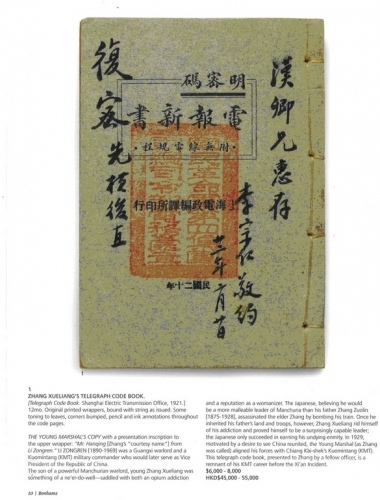 漢卿兄惠存
李宗仁敬約
明密碼
電報新書
·附無線電規程·
民國二十年
復密先橫後直
1
ZHANG XUELIANG'S TELEGRAPH CODE BOOK.
[Telegraph Code Book. Shanghai Electric Transmission Office, 1921.]
12mo. Original printed wrappers, bound with string as issued. Some
toning to leaves, corners bumped, pencil and ink annotations throughout
the code pages.
THE YOUNG MARSHAL'S COPY with a presentation inscription to
the upper wrapper: "Mr. Hanqing [Zhang's "courtesy name"] from
Li Zongren." LI ZONGREN [1890-1969] was a Guangxi warlord and a
Kuomintang (KMT) military commander who would later serve as Vice
President of the Republic of China.
The son of a powerful Manchurian warlord, young Zhang Xueliang was
something of a ne'er-do-well—saddled with both an opium addiction
and a reputation as a womanizer. The Japanese, believing he would
be a more malleable leader of Manchuria than his father Zhang Zuolin
[1875-1928], assassinated the elder Zhang by bombing his train. Once he
inherited his father's land and troops, however, Zhang Xueliang rid himself
of his addiction and proved himself to be a surprisingly capable leader;
the Japanese only succeeded in earning his undying enmity. In 1929,
motivated by a desire to see China reunited, the Young Marshal (as Zhang
was called) aligned his forces with Chiang Kai-shek's Kuomintang (KMT).
This telegraph code book, presented to Zhang by a fellow officer, is a
remnant of his KMT career before the Xi'an Incident.
$6,000 - 8,000
HKD$45,000 - 55,000
10 | Bonhams